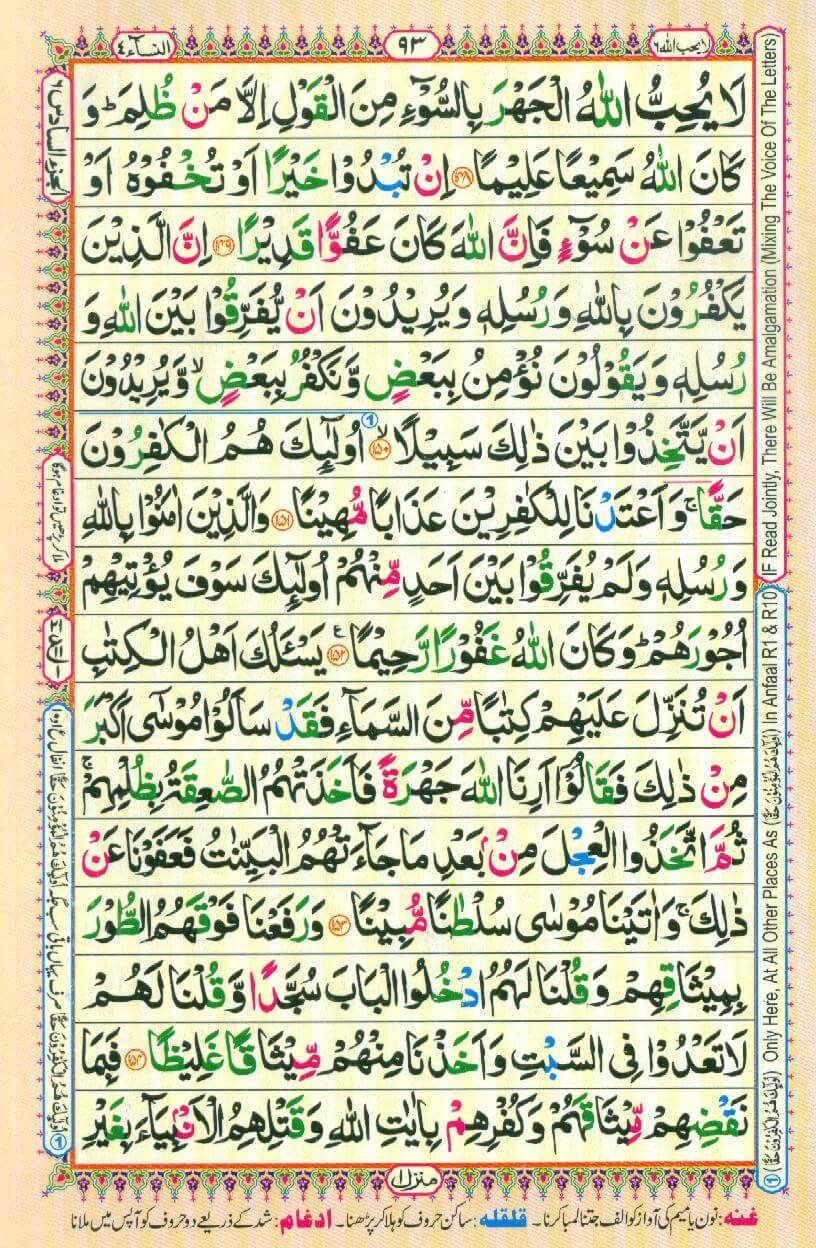 لا یحب اللہ ٦
٩٣
النسآء ٤
الجزء السادس ٦
لَا يُحِبُّ اللّٰهُ الْجَهْرَ بِالسُّوْٓءِ مِنَ الْقَوْلِ اِلَّا مَنْ ظُلِمَ ؕ وَ
كَانَ اللّٰهُ سَمِيْعًا عَلِيْمًا ﴿١٤٨﴾ اِنْ تُبْدُوْا خَيْرًا اَوْ تُخْفُوْهُ اَوْ
تَعْفُوْا عَنْ سُوْٓءٍ فَاِنَّ اللّٰهَ كَانَ عَفُوًّا قَدِيْرًا ﴿١٤٩﴾ اِنَّ الَّذِيْنَ
يَكْفُرُوْنَ بِاللّٰهِ وَرُسُلِهٖ وَيُرِيْدُوْنَ اَنْ يُّفَرِّقُوْا بَيْنَ اللّٰهِ وَ
رُسُلِهٖ وَيَقُوْلُوْنَ نُؤْمِنُ بِبَعْضٍ وَّنَكْفُرُ بِبَعْضٍ ۙ وَّيُرِيْدُوْنَ
اَنْ يَّتَّخِذُوْا بَيْنَ ذٰلِكَ سَبِيْلًا ۙ﴿١٥٠﴾ 1 اُولٰٓئِكَ هُمُ الْكٰفِرُوْنَ
حَقًّا ۚ وَاَعْتَدْنَا لِلْكٰفِرِيْنَ عَذَابًا مُّهِيْنًا ﴿١٥١﴾ وَالَّذِيْنَ اٰمَنُوْا بِاللّٰهِ
وَرُسُلِهٖ وَلَمْ يُفَرِّقُوْا بَيْنَ اَحَدٍ مِّنْهُمْ اُولٰٓئِكَ سَوْفَ يُؤْتِيْهِمْ
اُجُوْرَهُمْ ؕ وَكَانَ اللّٰهُ غَفُوْرًا رَّحِيْمًا ﴿١٥٢﴾ ع يَسْـَٔلُكَ اَهْلُ الْكِتٰبِ
اَنْ تُنَزِّلَ عَلَيْهِمْ كِتٰبًا مِّنَ السَّمَآءِ فَقَدْ سَاَلُوْا مُوْسٰٓى اَكْبَرَ
مِنْ ذٰلِكَ فَقَالُوْٓا اَرِنَا اللّٰهَ جَهْرَةً فَاَخَذَتْهُمُ الصّٰعِقَةُ بِظُلْمِهِمْ ۚ
ثُمَّ اتَّخَذُوا الْعِجْلَ مِنْۢ بَعْدِ مَا جَآءَتْهُمُ الْبَيِّنٰتُ فَعَفَوْنَا عَنْ
ذٰلِكَ ۚ وَاٰتَيْنَا مُوْسٰى سُلْطٰنًا مُّبِيْنًا ﴿١٥٣﴾ وَرَفَعْنَا فَوْقَهُمُ الطُّوْرَ
بِمِيْثَاقِهِمْ وَقُلْنَا لَهُمُ ادْخُلُوا الْبَابَ سُجَّدًا وَّقُلْنَا لَهُمْ
لَا تَعْدُوْا فِى السَّبْتِ وَاَخَذْنَا مِنْهُمْ مِّيْثَاقًا غَلِيْظًا ﴿١٥٤﴾ فَبِمَا
نَقْضِهِمْ مِّيْثَاقَهُمْ وَكُفْرِهِمْ بِاٰيٰتِ اللّٰهِ وَقَتْلِهِمُ الْاَنْۢبِيَآءَ بِغَيْرِ
منزل ١
غنه: نون یا میم کی آواز کو الف جتنا لمبا کرنا۔ قلقله: ساکن حروف کو ہلا کر پڑھنا۔ ادغام: شد کے ذریعے دو حروف کو آپس میں ملانا
(IF Read Jointly, There Will Be Amalgamation (Mixing The Voice Of The Letters)
1 (اُولٰٓئِكَ هُمُ الْكٰفِرُوْنَ حَقًّا) Only Here, At All Other Places As (اُولٰٓئِكَ هُمُ الْمُؤْمِنُوْنَ حَقًّا) In Anfaal R1 & R10